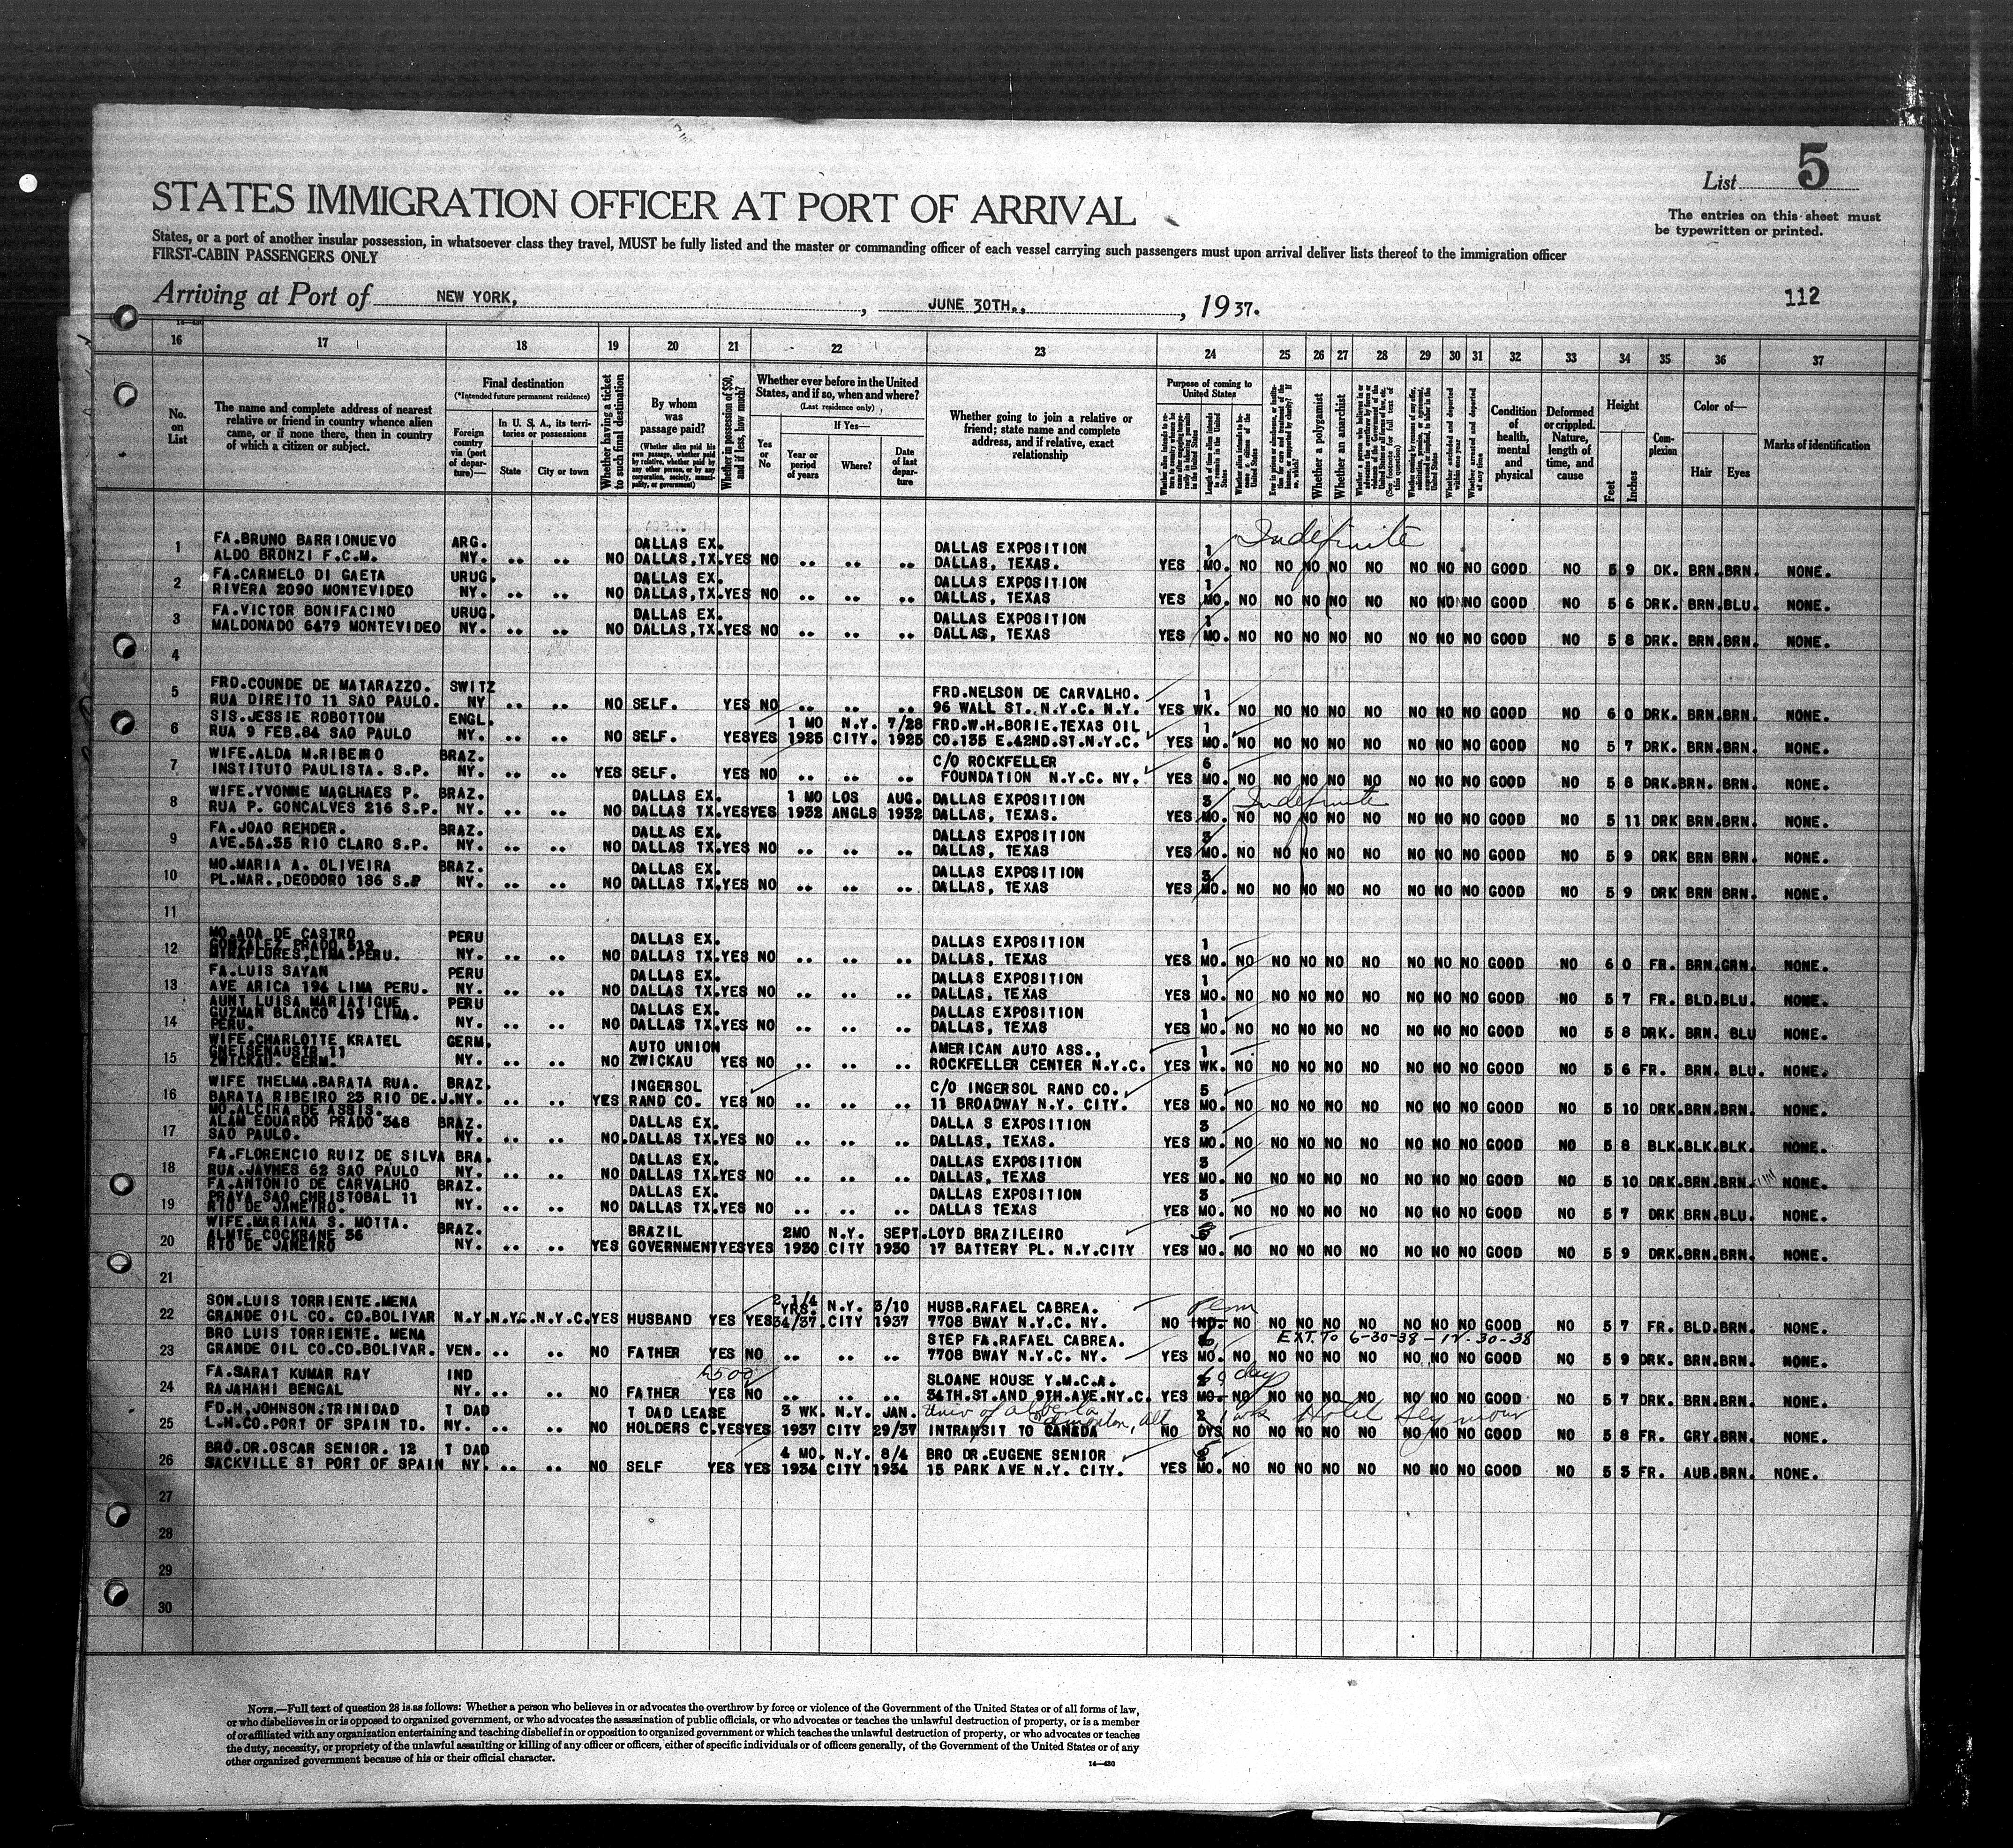 List 5
STATES IMMIGRATION OFFICER AT PORT OF ARRIVAL
The entries on this sheet must
be typewritten or printed.
States, or a port of another insular possession, in whatsoever class they travel, MUST be fully listed and the master or commanding officer of each vessel carrying such passengers must upon arrival deliver lists thereof to the immigration officer
FIRST-CABIN PASSENGERS ONLY
Arriving at Port of NEW YORK, , JUNE 30TH., , 1937.
112
16 17 18 19 20 21 22 23 24 25 26 27 28 29 30 31 32 33 34 35 36 37
No. on List
The name and complete address of nearest relative or friend in country whence alien came, or if none there, then in country of which a citizen or subject.
Final destination
(*Intended future permanent residence)
Foreign country via (port of departure)—
In U. S. A., its territories or possessions
State
City or town
Whether having a ticket to such final destination
By whom was passage paid?
(Whether alien paid his own passage, whether paid by relative, whether paid by any other person, or by any corporation, society, municipality, or government)
Whether in possession of $50, and if less, how much?
Whether ever before in the United States, and if so, when and where?
(Last residence only)
Yes or No
If Yes—
Year or period of years
Where?
Date of last departure
Whether going to join a relative or friend; state name and complete address, and if relative, exact relationship
Purpose of coming to United States
Whether a polygamist
Whether an anarchist
Condition of health, mental and physical
Deformed or crippled. Nature, length of time, and cause
Height
Feet
Inches
Complexion
Color of—
Hair
Eyes
Marks of identification
Indefinite
1 FA.BRUNO BARRIONUEVO ARG. DALLAS EX. DALLAS EXPOSITION 1
ALDO BRONZI F.C.M. NY. .. .. NO DALLAS,TX. YES NO .. .. .. DALLAS, TEXAS. YES MO. NO NO NO NO NO NO NO NO GOOD NO 5 9 DK. BRN. BRN. NONE.
2 FA.CARMELO DI GAETA URUG. DALLAS EX. DALLAS EXPOSITION 1
RIVERA 2090 MONTEVIDEO NY. .. .. NO DALLAS,TX. YES NO .. .. .. DALLAS, TEXAS YES MO. NO NO NO NO NO NO NO NO GOOD NO 5 6 DRK. BRN. BLU. NONE.
3 FA.VICTOR BONIFACINO URUG. DALLAS EX. DALLAS EXPOSITION 1
MALDONADO 6479 MONTEVIDEO NY. .. .. NO DALLAS,TX. YES NO .. .. .. DALLAS, TEXAS YES MO. NO NO NO NO NO NO NO NO GOOD NO 5 8 DRK. BRN. BRN. NONE.
4
5 FRD.COUNDE DE MATARAZZO. SWITZ FRD.NELSON DE CARVALHO. 1
RUA DIREITO 11 SAO PAULO. NY .. .. NO SELF. YES NO .. .. .. 96 WALL ST. N.Y.C. N.Y. YES WK. NO NO NO NO NO NO NO NO GOOD NO 6 0 DRK. BRN. BRN. NONE.
6 SIS.JESSIE ROBOTTOM ENGL. 1 MO N.Y. 7/28 FRD.W.H.BORIE.TEXAS OIL 1
RUA 9 FEB.84 SAO PAULO NY. .. .. NO SELF. YES YES 1925 CITY. 1925 CO.135 E.42ND.ST.N.Y.C. YES MO. NO NO NO NO NO NO NO NO GOOD NO 5 7 DRK. BRN. BRN. NONE.
7 WIFE.ALDA M.RIBEIRO BRAZ. C/O ROCKFELLER 6
INSTITUTO PAULISTA. S.P. NY. .. .. YES SELF. YES NO .. .. .. FOUNDATION N.Y.C. NY. YES MO. NO NO NO NO NO NO NO NO GOOD NO 5 8 DRK. BRN. BRN. NONE.
8 WIFE.YVONNE MAGLHAES P. BRAZ. DALLAS EX. 1 MO LOS AUG. DALLAS EXPOSITION 3 Indefinite
RUA P. GONCALVES 216 S.P. NY. .. .. NO DALLAS TX. YES YES 1932 ANGLS 1932 DALLAS, TEXAS. YES MO. NO NO NO NO NO NO NO NO GOOD NO 5 11 DRK BRN. BRN. NONE.
9 FA.JOAO REHDER. BRAZ. DALLAS EX. DALLAS EXPOSITION 3
AVE.5A.35 RIO CLARO S.P. NY. .. .. NO DALLAS TX. YES NO .. .. .. DALLAS, TEXAS YES MO. NO NO NO NO NO NO NO NO GOOD NO 5 9 DRK BRN BRN. NONE.
10 MO.MARIA A. OLIVEIRA BRAZ. DALLAS EX. DALLAS EXPOSITION 3
PL.MAR.,DEODORO 186 S.P NY. .. .. NO DALLAS TX. YES NO .. .. .. DALLAS, TEXAS YES MO. NO NO NO NO NO NO NO NO GOOD NO 5 9 DRK BRN BRN. NONE.
11
12 MO.ADA DE CASTRO PERU DALLAS EX. DALLAS EXPOSITION 1
GONZALEZ PRADO 519
MIRAFLORES,LIMA.PERU. NY. .. .. NO DALLAS TX. YES NO .. .. .. DALLAS, TEXAS YES MO. NO NO NO NO NO NO NO NO GOOD NO 6 0 FR. BRN. GRN. NONE.
13 FA.LUIS SAYAN PERU DALLAS EX. DALLAS EXPOSITION 1
AVE ARICA 194 LIMA PERU. NY. .. .. NO DALLAS TX. YES NO .. .. .. DALLAS, TEXAS YES MO. NO NO NO NO NO NO NO NO GOOD NO 5 7 FR. BLD. BLU. NONE.
14 AUNT LUISA MARIATIGUE PERU DALLAS EX. DALLAS EXPOSITION 1
GUZMAN BLANCO 419 LIMA.
PERU. NY. .. .. NO DALLAS TX. YES NO .. .. .. DALLAS, TEXAS YES MO. NO NO NO NO NO NO NO NO GOOD NO 5 8 DRK. BRN. BLU NONE.
15 WIFE.CHARLOTTE KRATEL GERM. AUTO UNION AMERICAN AUTO ASS., 1
GNEISENAUSTR 11
ZWICKAU. GERM. NY. .. .. NO ZWICKAU YES NO .. .. .. ROCKFELLER CENTER N.Y.C. YES WK. NO NO NO NO NO NO NO NO GOOD NO 5 6 FR. BRN. BLU. NONE.
16 WIFE THELMA.BARATA RUA. BRAZ. INGERSOL C/O INGERSOL RAND CO. 5
BARATA RIBEIRO 23 RIO DE.J. NY. .. .. YES RAND CO. YES NO .. .. .. 11 BROADWAY N.Y. CITY. YES MO. NO NO NO NO NO NO NO NO GOOD NO 5 10 DRK. BRN. BRN. NONE.
17 MO.ALCIRA DE ASSIS.
ALAM EDUARDO PRADO 348 BRAZ. DALLAS EX. DALLA S EXPOSITION 3
SAO PAULO. NY. .. .. NO. DALLAS TX. YES NO .. .. .. DALLAS, TEXAS. YES MO. NO NO NO NO NO NO NO NO GOOD NO 5 8 BLK. BLK. BLK. NONE.
18 FA.FLORENCIO RUIZ DE SILVA BRA. DALLAS EX. DALLAS EXPOSITION 3
RUA.JAYMES 62 SAO PAULO NY. .. .. NO DALLAS TX. YES NO .. .. .. DALLAS, TEXAS YES MO. NO NO NO NO NO NO NO NO GOOD NO 5 10 DRK. BRN. BRN. NONE.
19 FA.ANTONIO DE CARVALHO BRAZ. DALLAS EX. DALLAS EXPOSITION 3
PRAYA SAO CHRISTOBAL 11
RIO DE JANEIRO. NY. .. .. NO DALLAS TX. YES NO .. .. .. DALLAS TEXAS YES MO. NO NO NO NO NO NO NO NO GOOD NO 5 7 DRK BRN. BLU. NONE.
20 WIFE.MARIANA S. MOTTA. BRAZ. BRAZIL 2MO N.Y. SEPT. LOYD BRAZILEIRO
ALMTE COCKRANE 36
RIO DE JANEIRO NY. .. .. YES GOVERNMENT YES YES 1930 CITY 1930 17 BATTERY PL. N.Y.CITY YES MO. NO NO NO NO NO NO NO NO GOOD NO 5 9 DRK. BRN. BRN. NONE.
21
22 SON.LUIS TORRIENTE.MENA 2 1/4 YRS. N.Y. 3/10 HUSB.RAFAEL CABREA. Perm
GRANDE OIL CO. CD.BOLIVAR N.Y. N.Y. N.Y.C. YES HUSBAND YES YES 34/37. CITY 1937 7708 BWAY N.Y.C. NY. NO IND. NO NO NO NO NO NO NO NO GOOD NO 5 7 FR. BLD. BRN. NONE.
23 BRO LUIS TORRIENTE. MENA STEP FA.RAFAEL CABREA. 6 EXT. TO 6-30-38 – 12-30-38
GRANDE OIL CO.CD.BOLIVAR. VEN. .. .. NO FATHER YES NO .. .. .. 7708 BWAY N.Y.C. NY. YES MO. NO NO NO NO NO NO NO NO GOOD NO 5 9 DRK. BRN. BRN. NONE.
24 FA.SARAT KUMAR RAY IND SLOANE HOUSE Y.M.C.A. days
RAJAHAHI BENGAL NY. .. .. NO FATHER YES NO .. .. .. 34TH.ST.AND 9TH.AVE.NY.C. YES MO. NO NO NO NO NO NO NO NO GOOD NO 5 7 DRK. BRN. BRN. NONE.
25 FD.H.JOHNSON.TRINIDAD T DAD T DAD LEASE 3 WK. N.Y. JAN. Univ of Alberta Edmonton, Alt 2 1 wk Hotel Seymour
L.H.CO.PORT OF SPAIN TD. NY. .. .. NO HOLDERS C. YES YES 1937 CITY 29/37 INTRANSIT TO CANADA NO DYS NO NO NO NO NO NO NO NO GOOD NO 5 8 FR. GRY. BRN. NONE.
26 BRO.DR.OSCAR SENIOR. 12 T DAD 4 MO. N.Y. 8/4 BRO DR.EUGENE SENIOR
SACKVILLE ST PORT OF SPAIN NY. .. .. NO SELF YES YES 1934 CITY 1934 15 PARK AVE N.Y. CITY. YES MO. NO NO NO NO NO NO NO NO GOOD NO 5 3 FR. AUB. BRN. NONE.
27
28
29
30
NOTE.—Full text of question 28 is as follows: Whether a person who believes in or advocates the overthrow by force or violence of the Government of the United States or of all forms of law,
or who disbelieves in or is opposed to organized government, or who advocates the assassination of public officials, or who advocates or teaches the unlawful destruction of property, or is a member
of or affiliated with any organization entertaining and teaching disbelief in or opposition to organized government or which teaches the unlawful destruction of property, or who advocates or teaches
the duty, necessity, or propriety of the unlawful assaulting or killing of any officer or officers, either of specific individuals or of officers generally, of the Government of the United States or of any
other organized government because of his or their official character.
14—430